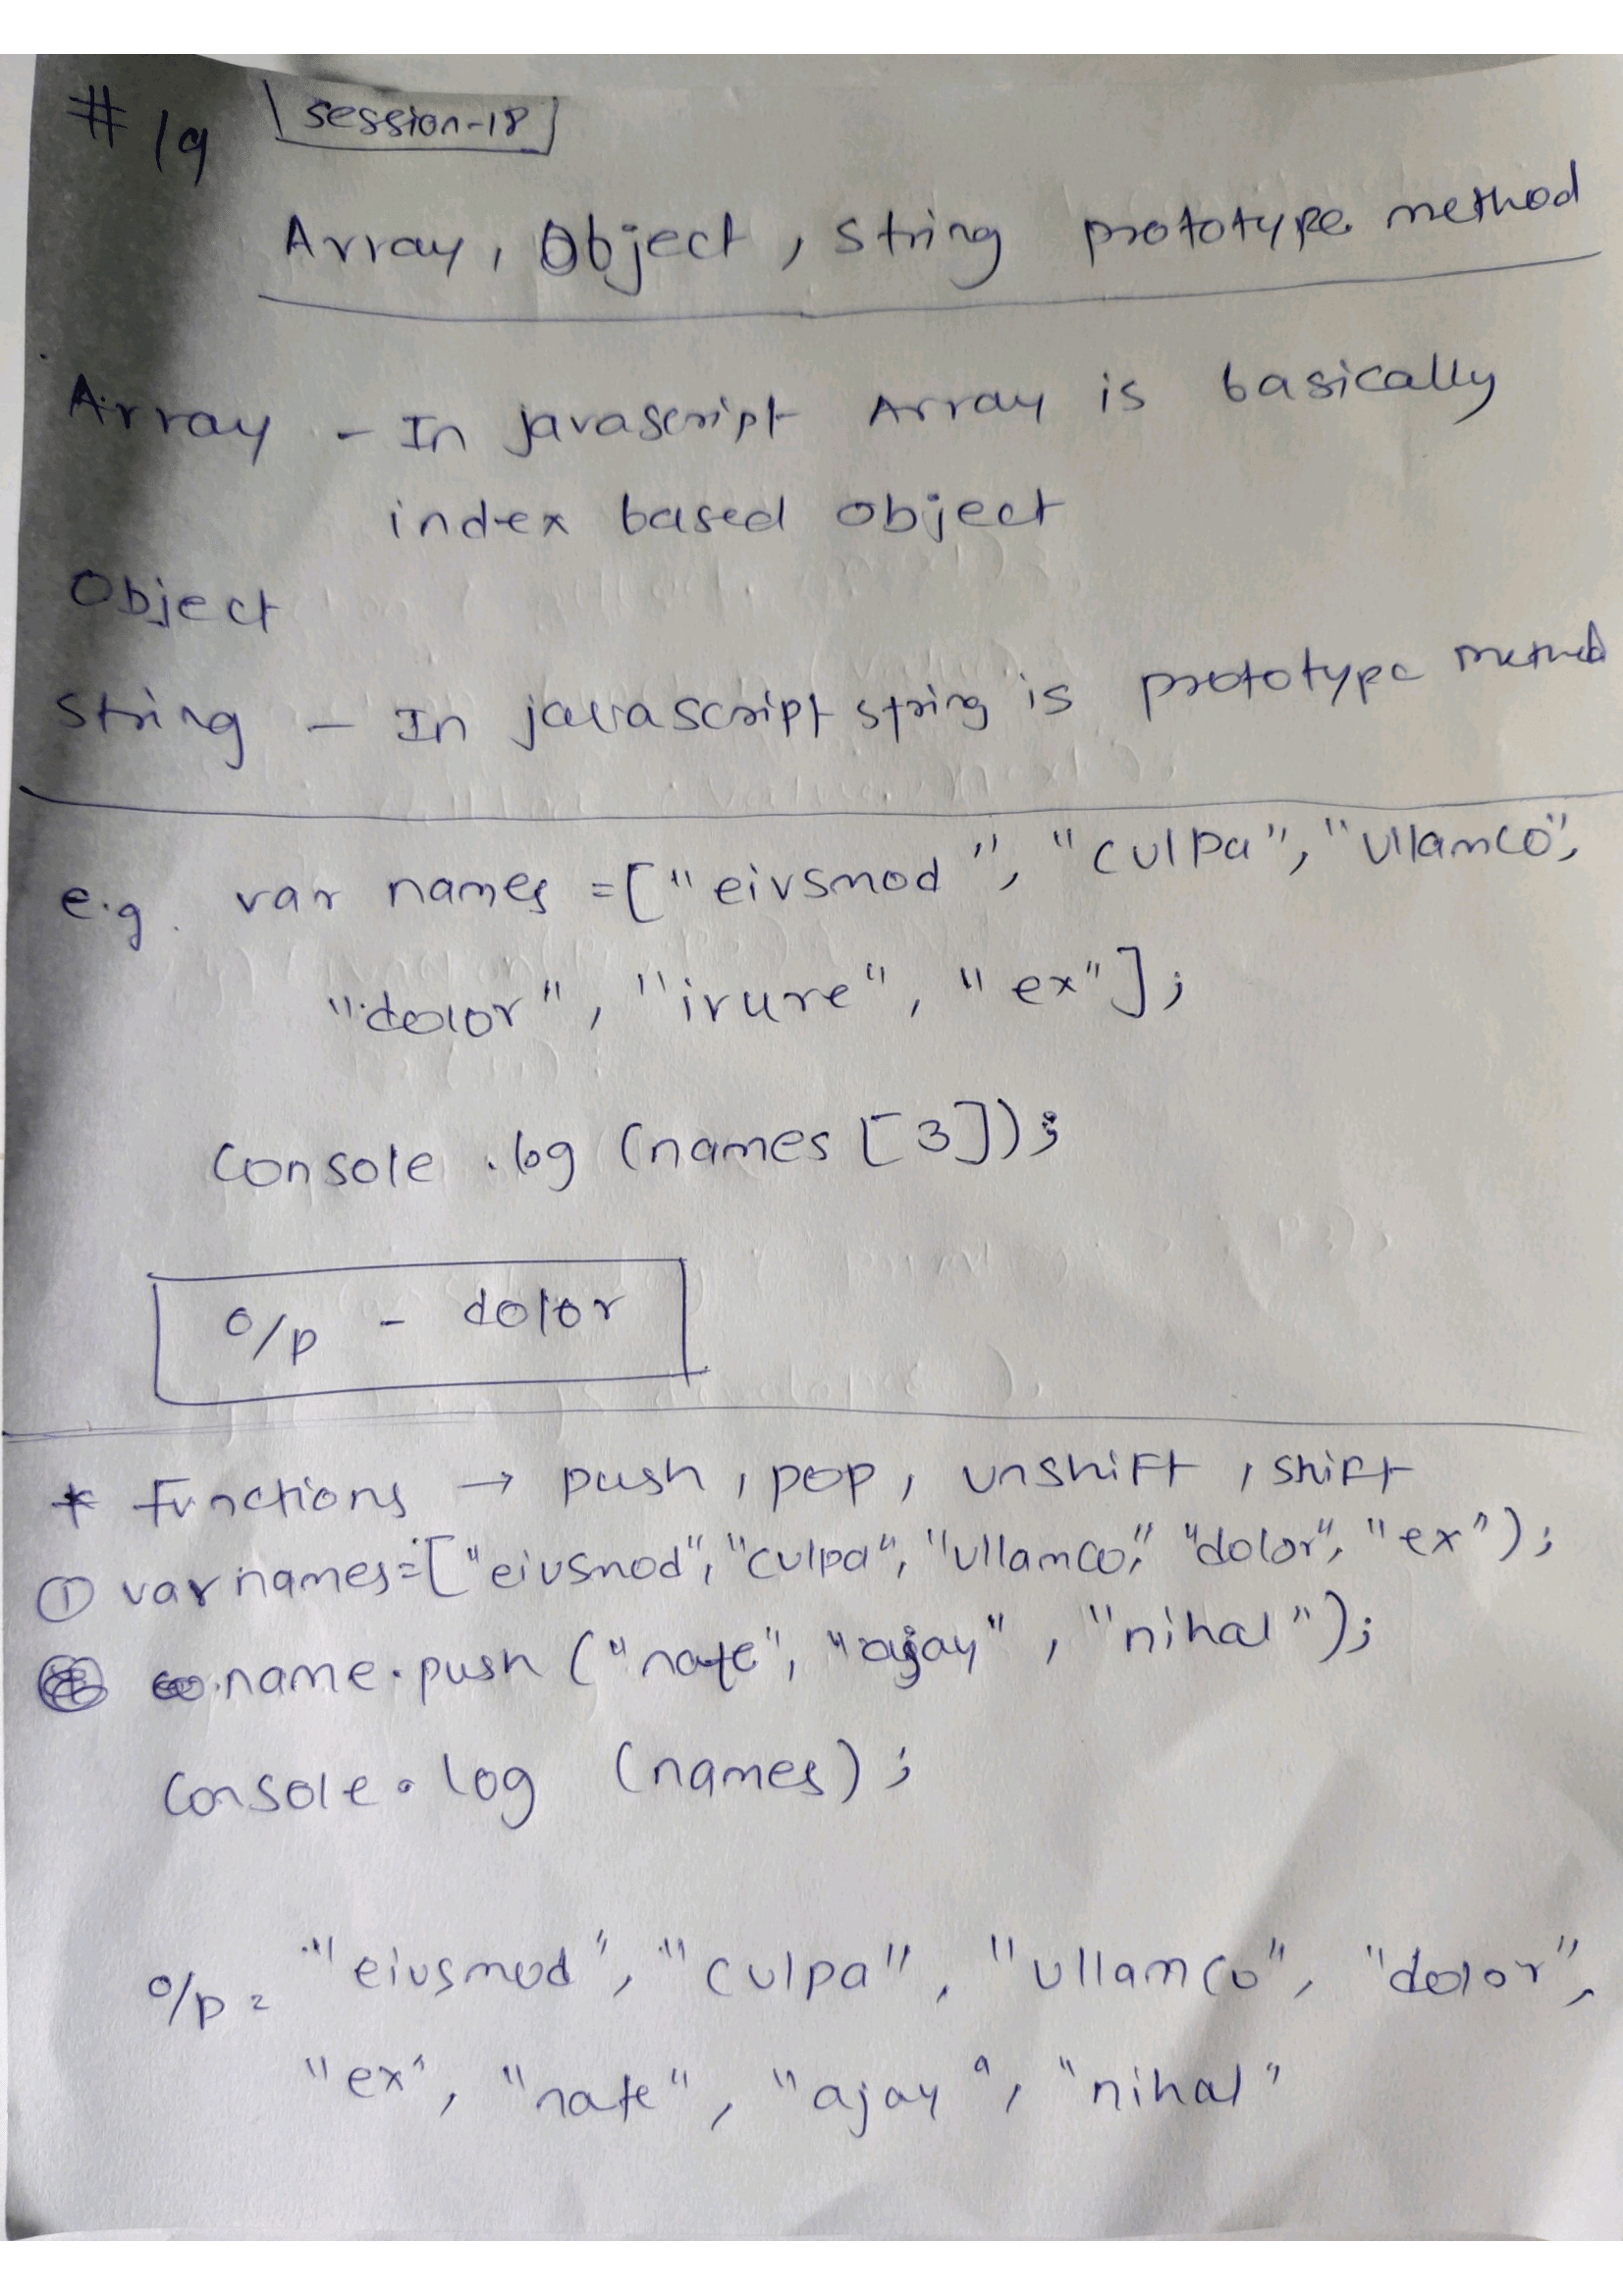 # 19 session-18
Array, Object, string prototype method
Array - In javascript Array is basically
index based object
Object
string - In javascript string is prototype method
e.g. var names =["eivsmod", "culpa", "ullamco",
"dolor", "irure", "ex"];
Console .log (names [3]);
o/p - dolor
* Functions → push, pop, unshift, shift
① var names=["eiusmod", "culpa", "ullamco", "dolor", "ex");
name.push ("nate", "ajay", "nihal");
Console.log (names);
o/p = "eiusmod", "culpa", "ullamco", "dolor",
"ex", "nate", "ajay", "nihal"